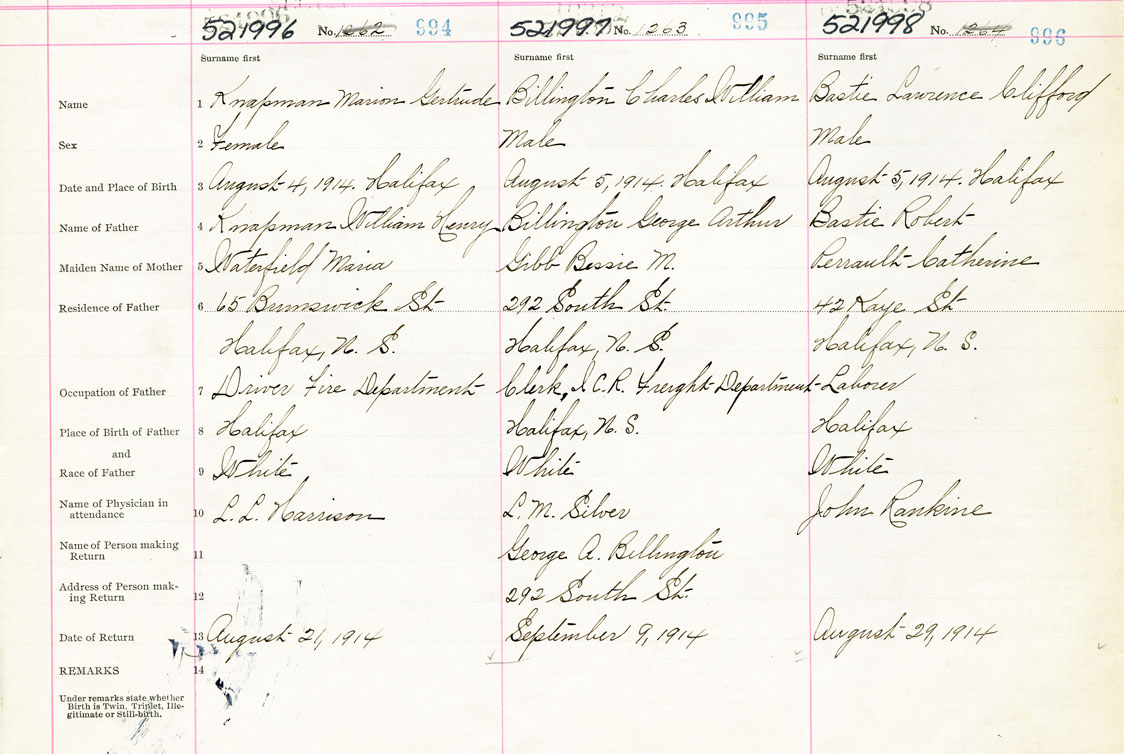 521996 No. 1262 994 521997 No. 1263 995 521998 No. 1264 996
Surname first Surname first Surname first
Name 1 Knapman Marion Gertrude Billington Charles William Bastie Lawrence Clifford
Sex 2 Female Male Male
Date and Place of Birth 3 August 4, 1914. Halifax August 5, 1914. Halifax August 5, 1914. Halifax
Name of Father 4 Knapman William Henry Billington George Arthur Bastie Robert
Maiden Name of Mother 5 Waterfield Maria Gibb Bessie M. Perrault Catherine
Residence of Father 6 65 Brunswick St 292 South St. 42 Kaye St
Halifax, N. S. Halifax, N. S. Halifax, N. S.
Occupation of Father 7 Driver Fire Department Clerk, I.C.R. Freight Department Laborer
Place of Birth of Father 8 Halifax Halifax, N. S. Halifax
and
Race of Father 9 White White White
Name of Physician in
attendance 10 L. L. Harrison L. M. Silver John Rankine
Name of Person making
Return 11 George A. Billington
Address of Person mak-
ing Return 12 292 South St.
Date of Return 13 August 21, 1914 September 9, 1914 August 29, 1914
REMARKS 14
Under remarks state whether
Birth is Twin, Triplet, Ille-
gitimate or Still-birth.